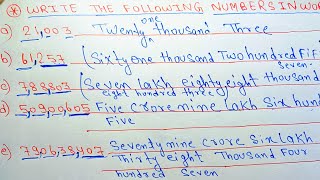 * WRITE THE FOLLOWING NUMBERS IN WO
one
a) 21,003 Twenty thousand Three
b) 61,257 (Sixty One thousand Two hundred Fif
seven.
c) 788803 (Seven lakh eighty eight thousand
eight hundred three)
d) 50900605 Five crore nine lakh Six hund
Five
e) 790638407 Seventy nine crore Six lakh
Thirty eight Thousand Four
hundred Seven